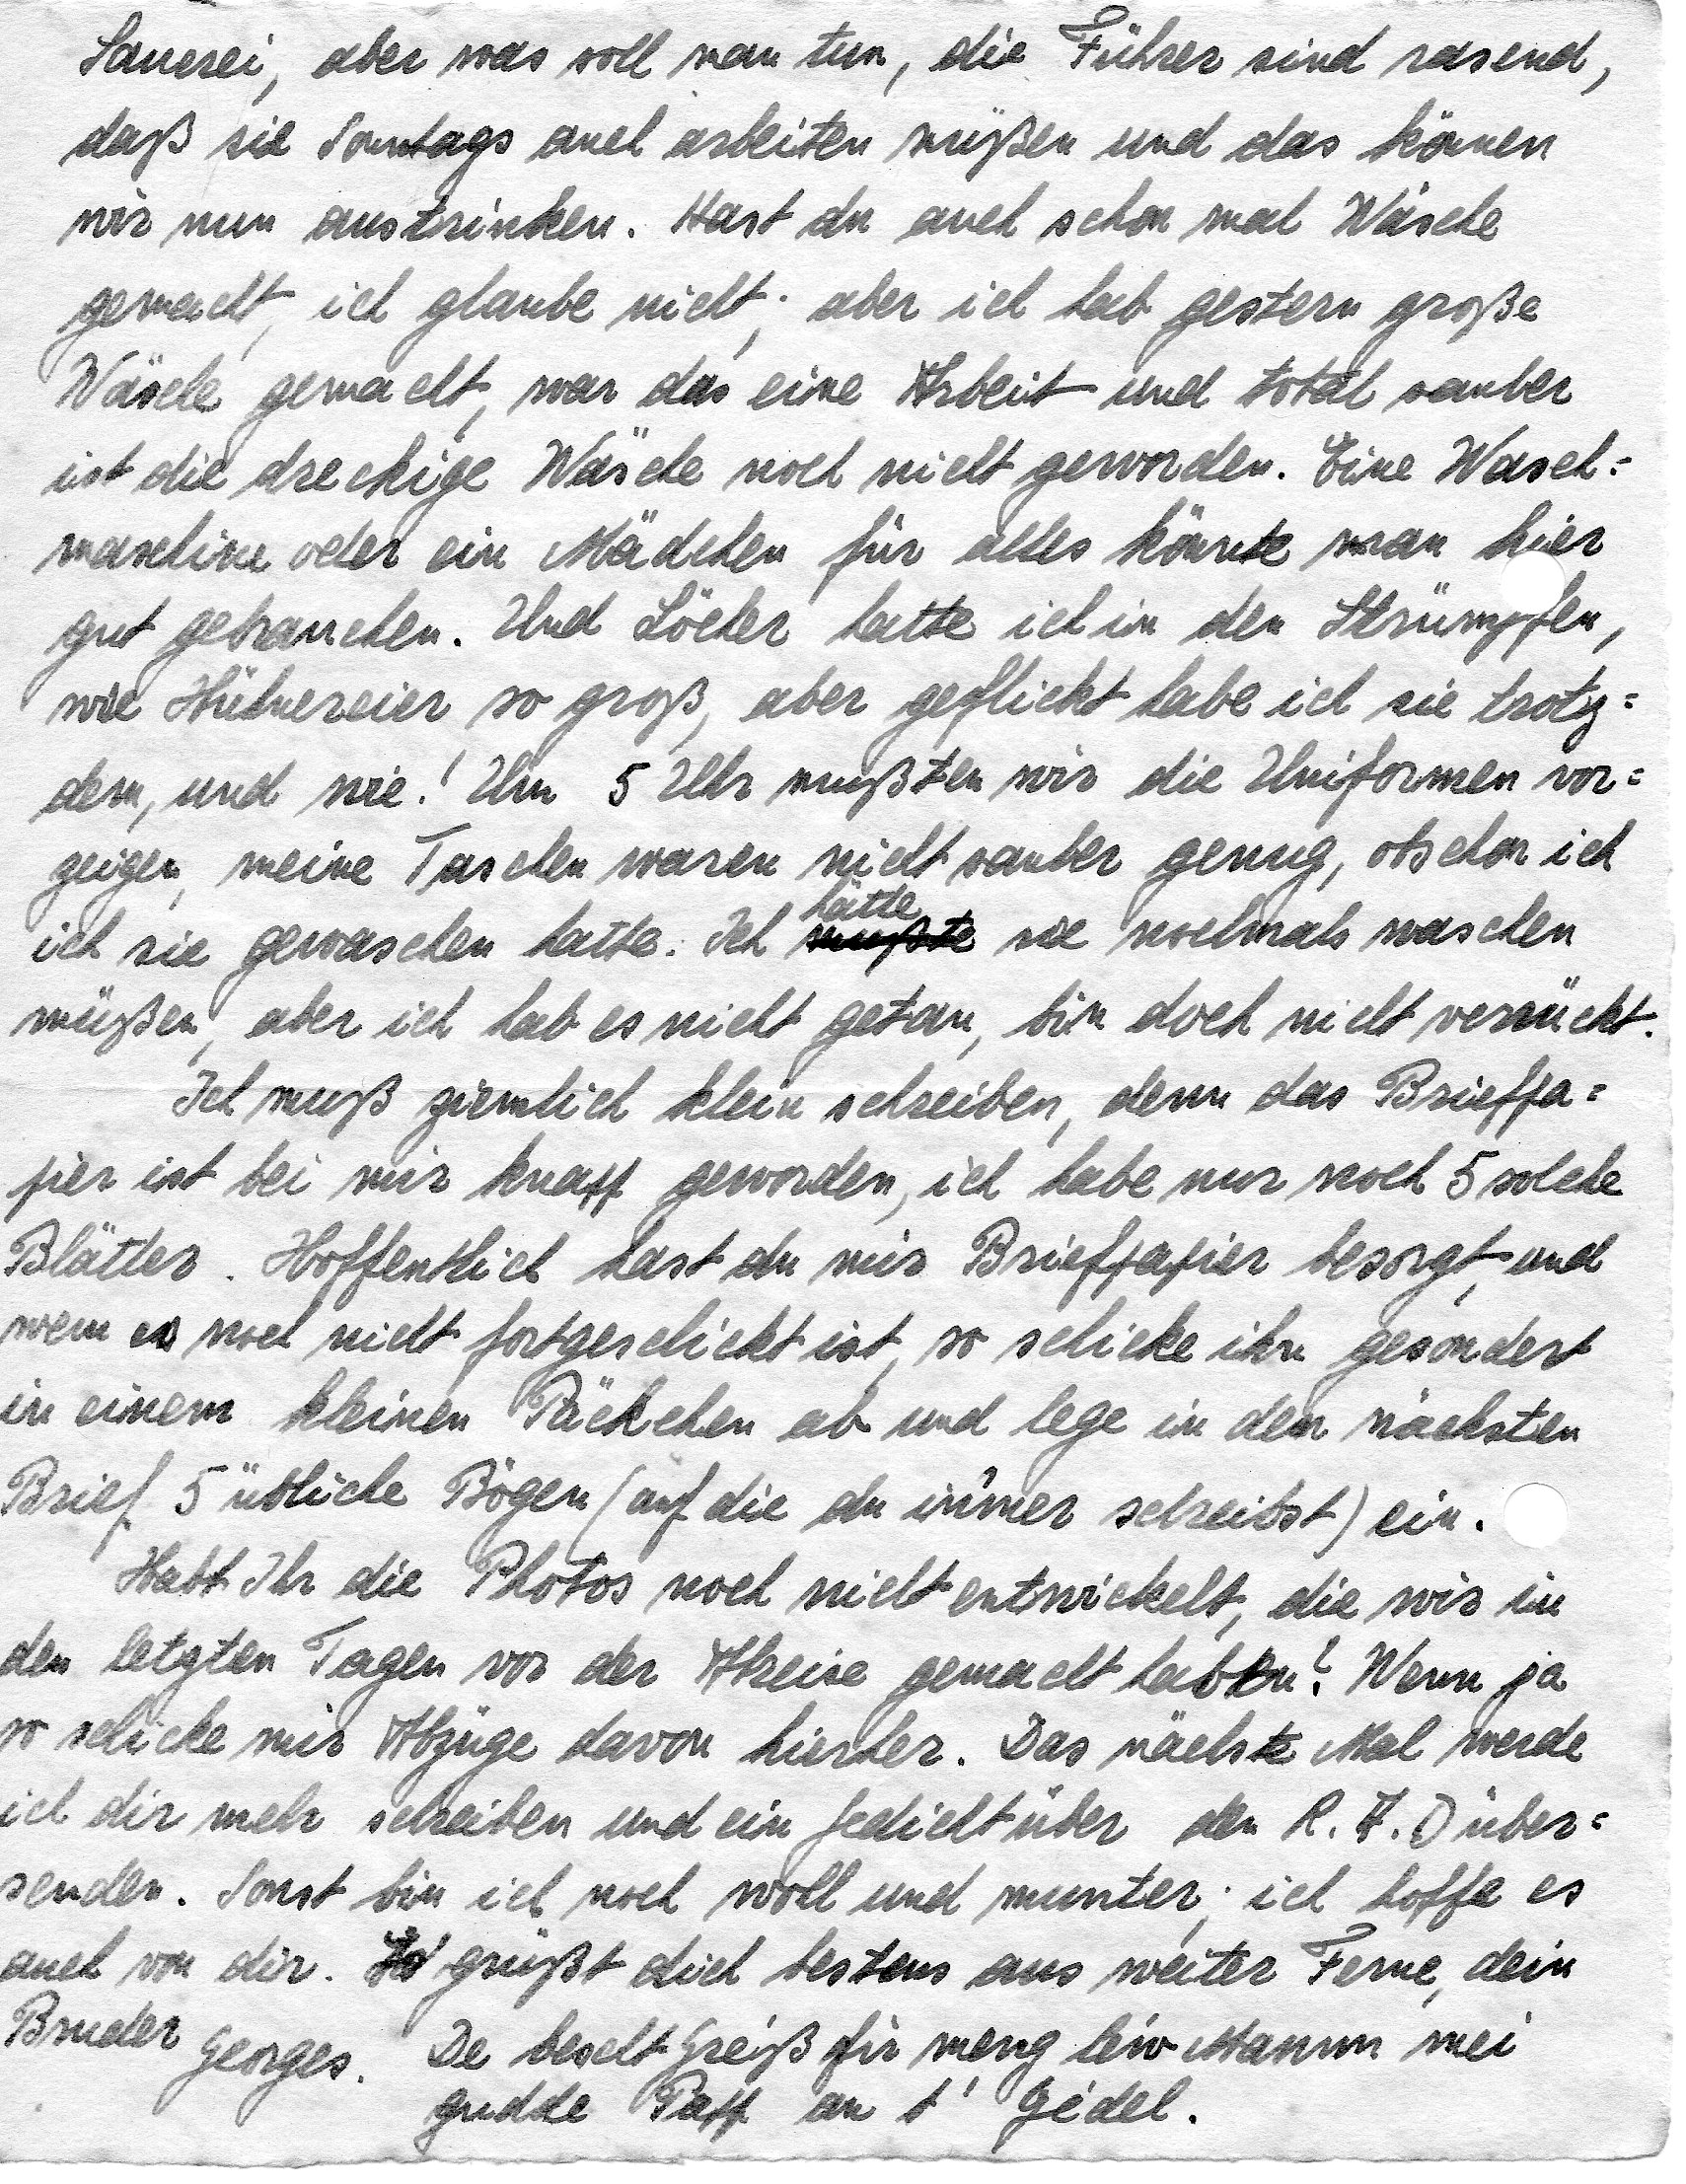 Sauerei, aber was soll man tun, die Führer sind rasend,
daß sie Sonntags auch arbeiten müßen und das können
wir nun austrinken. Hast du auch schon mal Wäsche
gemacht, ich glaube nicht; aber ich hab gestern große
Wäsche gemacht, war das eine Arbeit und total sauber
ist die dreckige Wäsche noch nicht geworden. Eine Wasch=
maschine oder ein Mädchen für alles könnte man hier
gut gebrauchen. Und Löcher hatte ich in den Strümpfen,
wie Hühnereier so groß, aber geflickt habe ich sie trotz=
dem, und wie! Um 5 Uhr mußten wir die Uniformen vor=
zeigen, meine Taschen waren nicht sauber genug, obschon ich
ich sie gewaschen hatte. Ich hätte sie nochmals waschen
müßen, aber ich hab es nicht getan, bin doch nicht verrückt.
Ich muß ziemlich klein schreiben, denn das Briefpa=
pier ist bei mir knapp geworden, ich habe nur noch 5 solche
Blätter. Hoffentlich hast du mir Briefpapier besorgt, und
wenn es noch nicht fortgeschickt ist, so schicke ihn gesondert
in einem kleinen Päckchen ab und lege in den nächsten
Brief 5 übliche Bögen (auf die du immer schreibst) ein.
Habt Ihr die Photos noch nicht entwickelt, die wir in
den letzten Tagen vor der Abreise gemacht haben? Wenn ja
so schicke mir Abzüge davon hierher. Das nächste Mal werde
ich dir mehr schreiben und ein Gedicht über den R.A.D über=
senden. Sonst bin ich noch wohl und munter; ich hoffe es
auch von dir. So grüßt dich bestens aus weiter Ferne, dein
Bruder Georges. De bescht Greiß fir meng leiw Mamm mei
gudde Papp an t' Gédel.